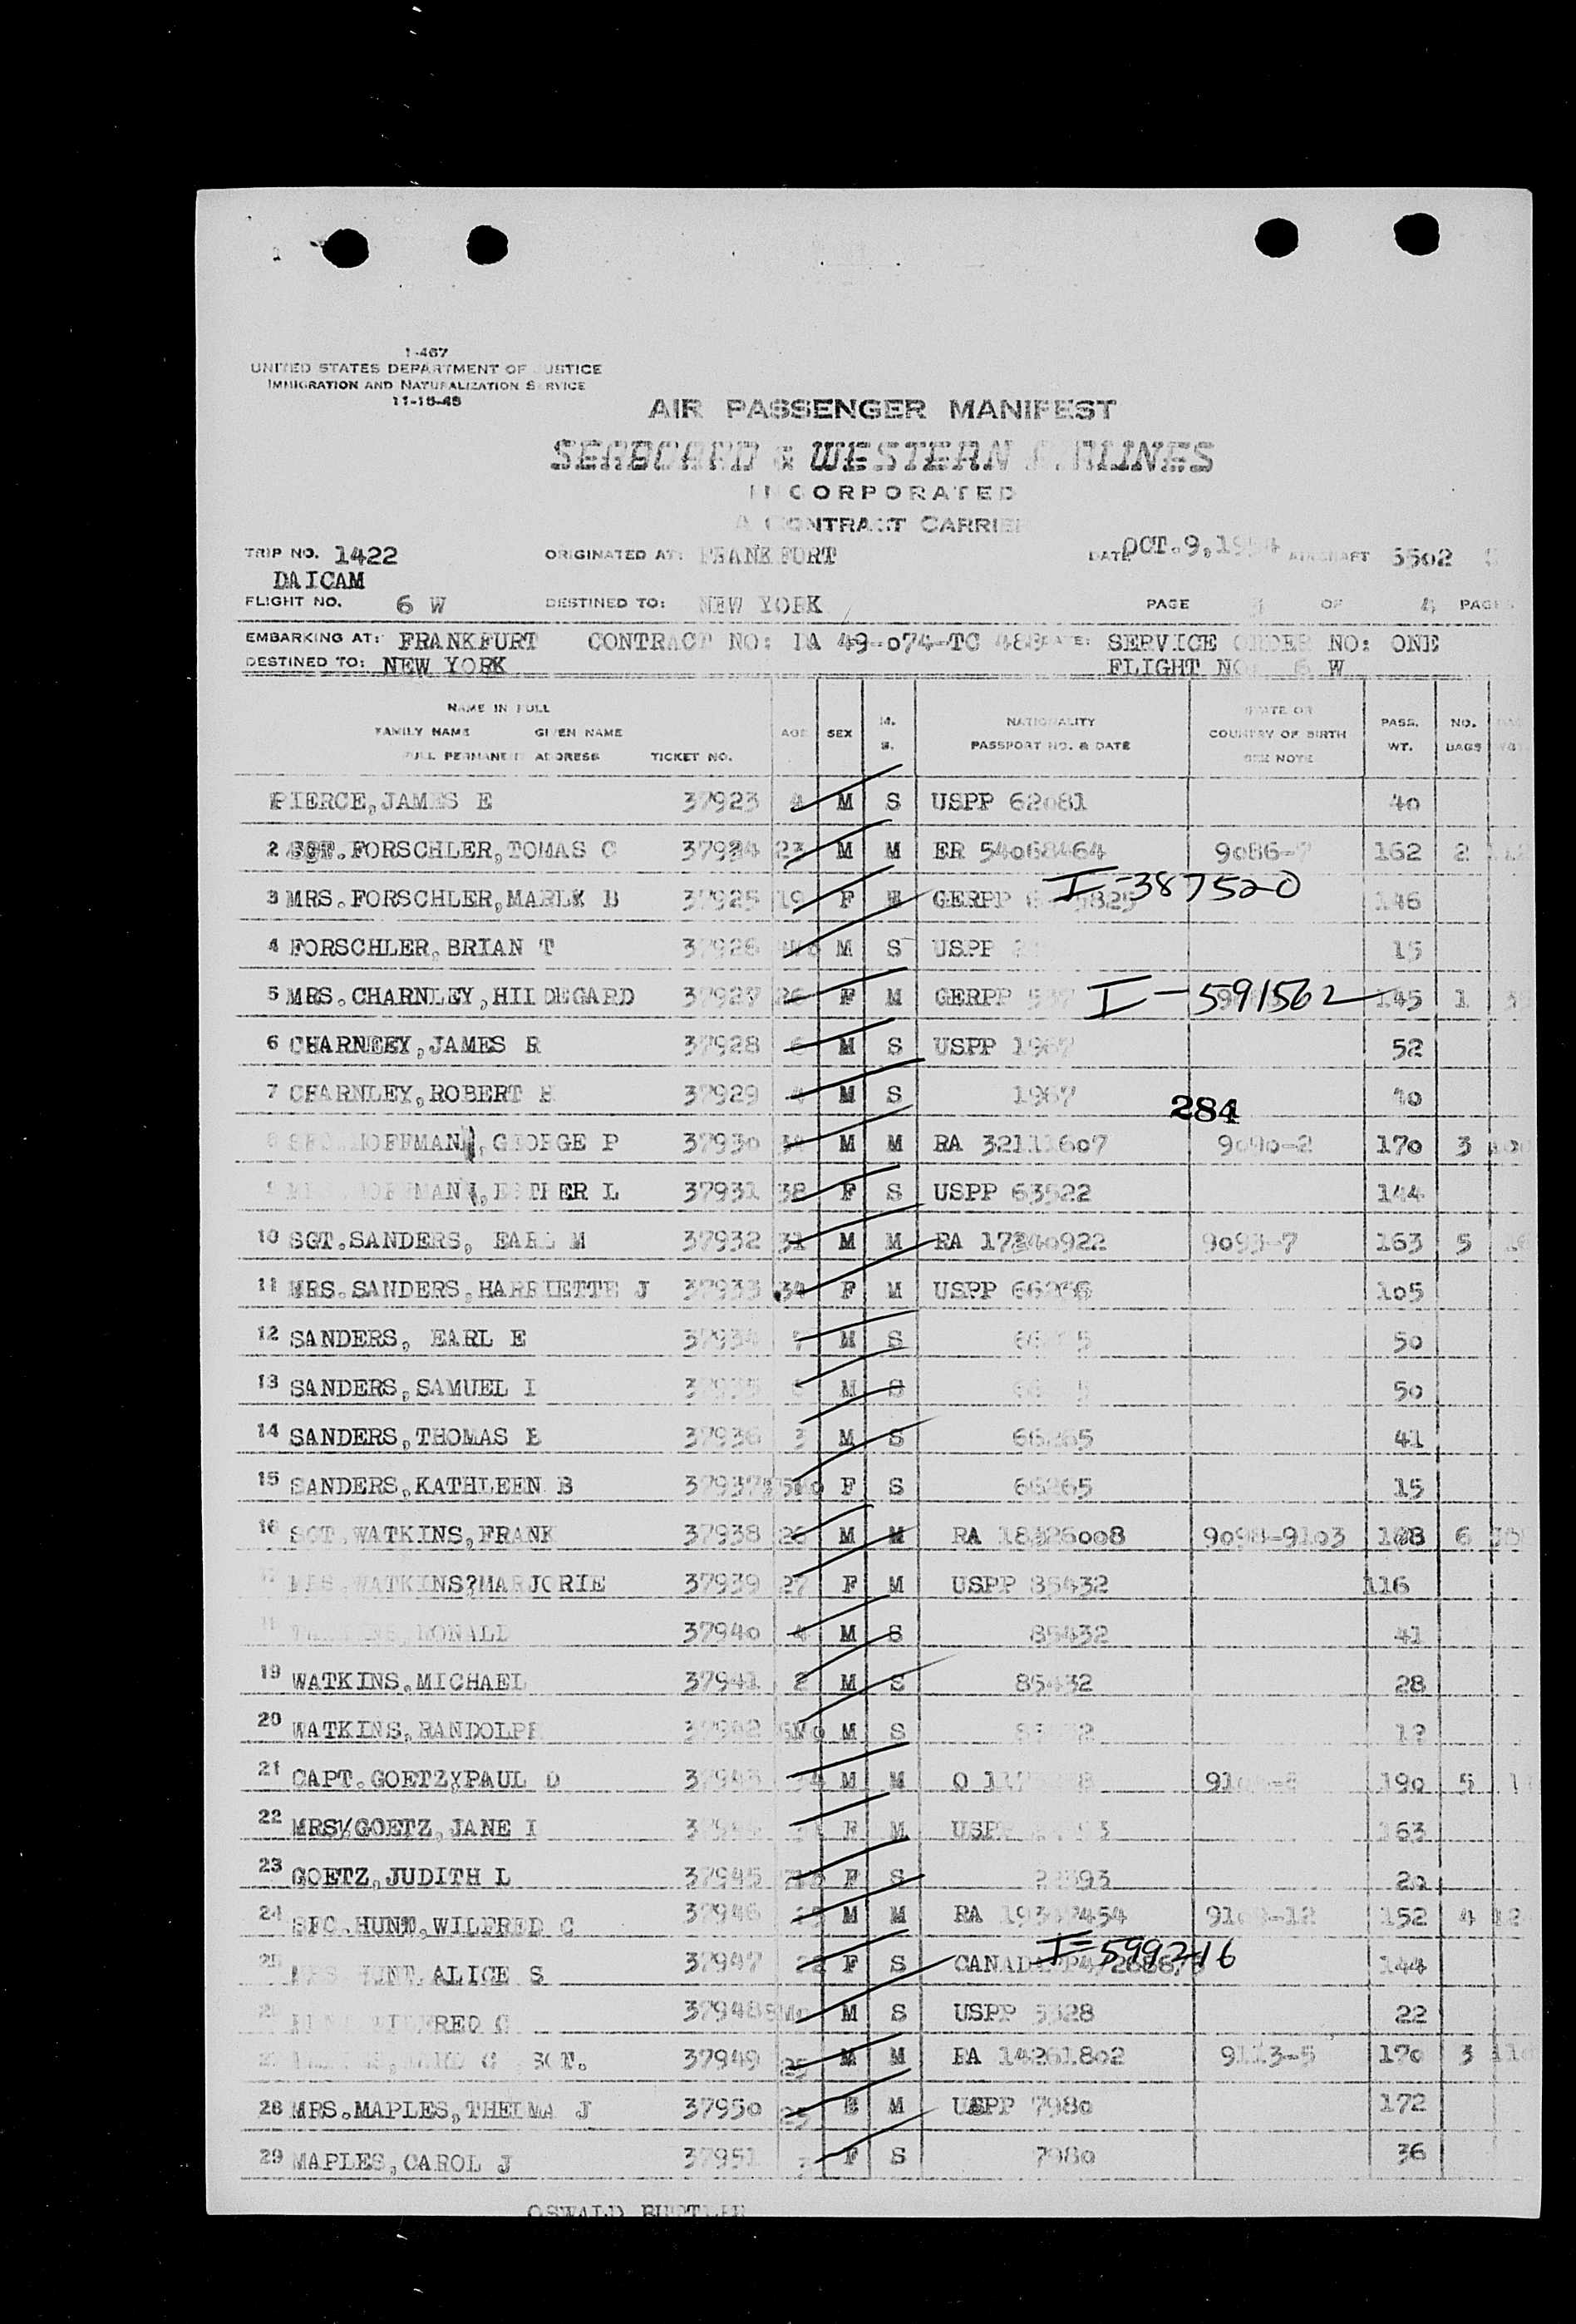 1-467
UNITED STATES DEPARTMENT OF JUSTICE
IMMIGRATION AND NATURALIZATION SERVICE
11-18-48
AIR PASSENGER MANIFEST
SEABOARD & WESTERN AIRLINES
INCORPORATED
A CONTRACT CARRIER
TRIP NO. 1422 ORIGINATED AT: FRANKFURT DATE OCT.9,1954 AIRCRAFT 5502
DAICAM
FLIGHT NO. 6 W DESTINED TO: NEW YORK PAGE OF 4 PAGES
EMBARKING AT: FRANKFURT CONTRACT NO: DA 49-074-TC 488 DATE: SERVICE ORDER NO: ONE
DESTINED TO: NEW YORK FLIGHT NO: 6 W
NAME IN FULL
FAMILY NAME GIVEN NAME
FULL PERMANENT ADDRESS TICKET NO. AGE SEX M. S. NATIONALITY PASSPORT NO. & DATE STATE OR COUNTRY OF BIRTH SEE NOTE PASS. WT. NO. BAGS
PIERCE,JAMES E 37923 4 M S USPP 62081 40
2 SGT.FORSCHLER,TOMAS C 37924 23 M M ER 54068464 9086-7 162 2
I-387520
3 MRS.FORSCHLER,MARLK B 37925 19 F M GERPP 146
4 FORSCHLER,BRIAN T 37926 M S USPP 15
5 MRS.CHARNLEY,HILDEGARD 37927 26 F M GERPP I-591562 145 1
6 CHARNEEY,JAMES R 37928 6 M S USPP 1967 52
7 CHARNLEY,ROBERT H 37929 4 M S 1967 40
284
8 SFC.HOFFMAN,GEORGE P 37930 M M RA 32111607 9090-2 170 3
9 MRS.HOFFMAN,ESTHER L 37931 38 F S USPP 63522 144
10 SGT.SANDERS, EARL M 37932 31 M M RA 17240922 9093-7 163 5
11 MRS.SANDERS,HARRIETTE J 37933 34 F M USPP 105
12 SANDERS, EARL E 37934 7 M S 50
13 SANDERS,SAMUEL I 37935 M S 50
14 SANDERS,THOMAS B 37936 3 M S 66265 41
15 SANDERS,KATHLEEN B 37937 F S 66265 15
16 SGT.WATKINS,FRANK 37938 26 M M RA 18326008 9098-9103 6
17 MRS.WATKINS?MARJORIE 37939 27 F M USPP 85432 116
18 WATKINS,RONALD 37940 4 M S 85432 41
19 WATKINS,MICHAEL 37941 2 M S 85432 28
20 WATKINS,RANDOLPH 37942 M S
21 CAPT.GOETZ,PAUL D 37943 M M 190 5
22 MRS/GOETZ,JANE I F M USPP 163
23 GOETZ,JUDITH L 37945 F S 20
24 SFC.HUNT,WILFRED C 37946 M M RA 152 4
I-599216
25 MRS HUNT,ALICE S 37947 22 F S CANADA 144
26 HUNT,WILFRED C 37948 M S USPP 5328 22
27 SGT. 37949 25 M M RA 14261802 9113-5 170 3
28 MRS.MAPLES,THELMA J 37950 25 M USPP 7980 172
29 MAPLES,CAROL J 37951 3 F S 7980 36